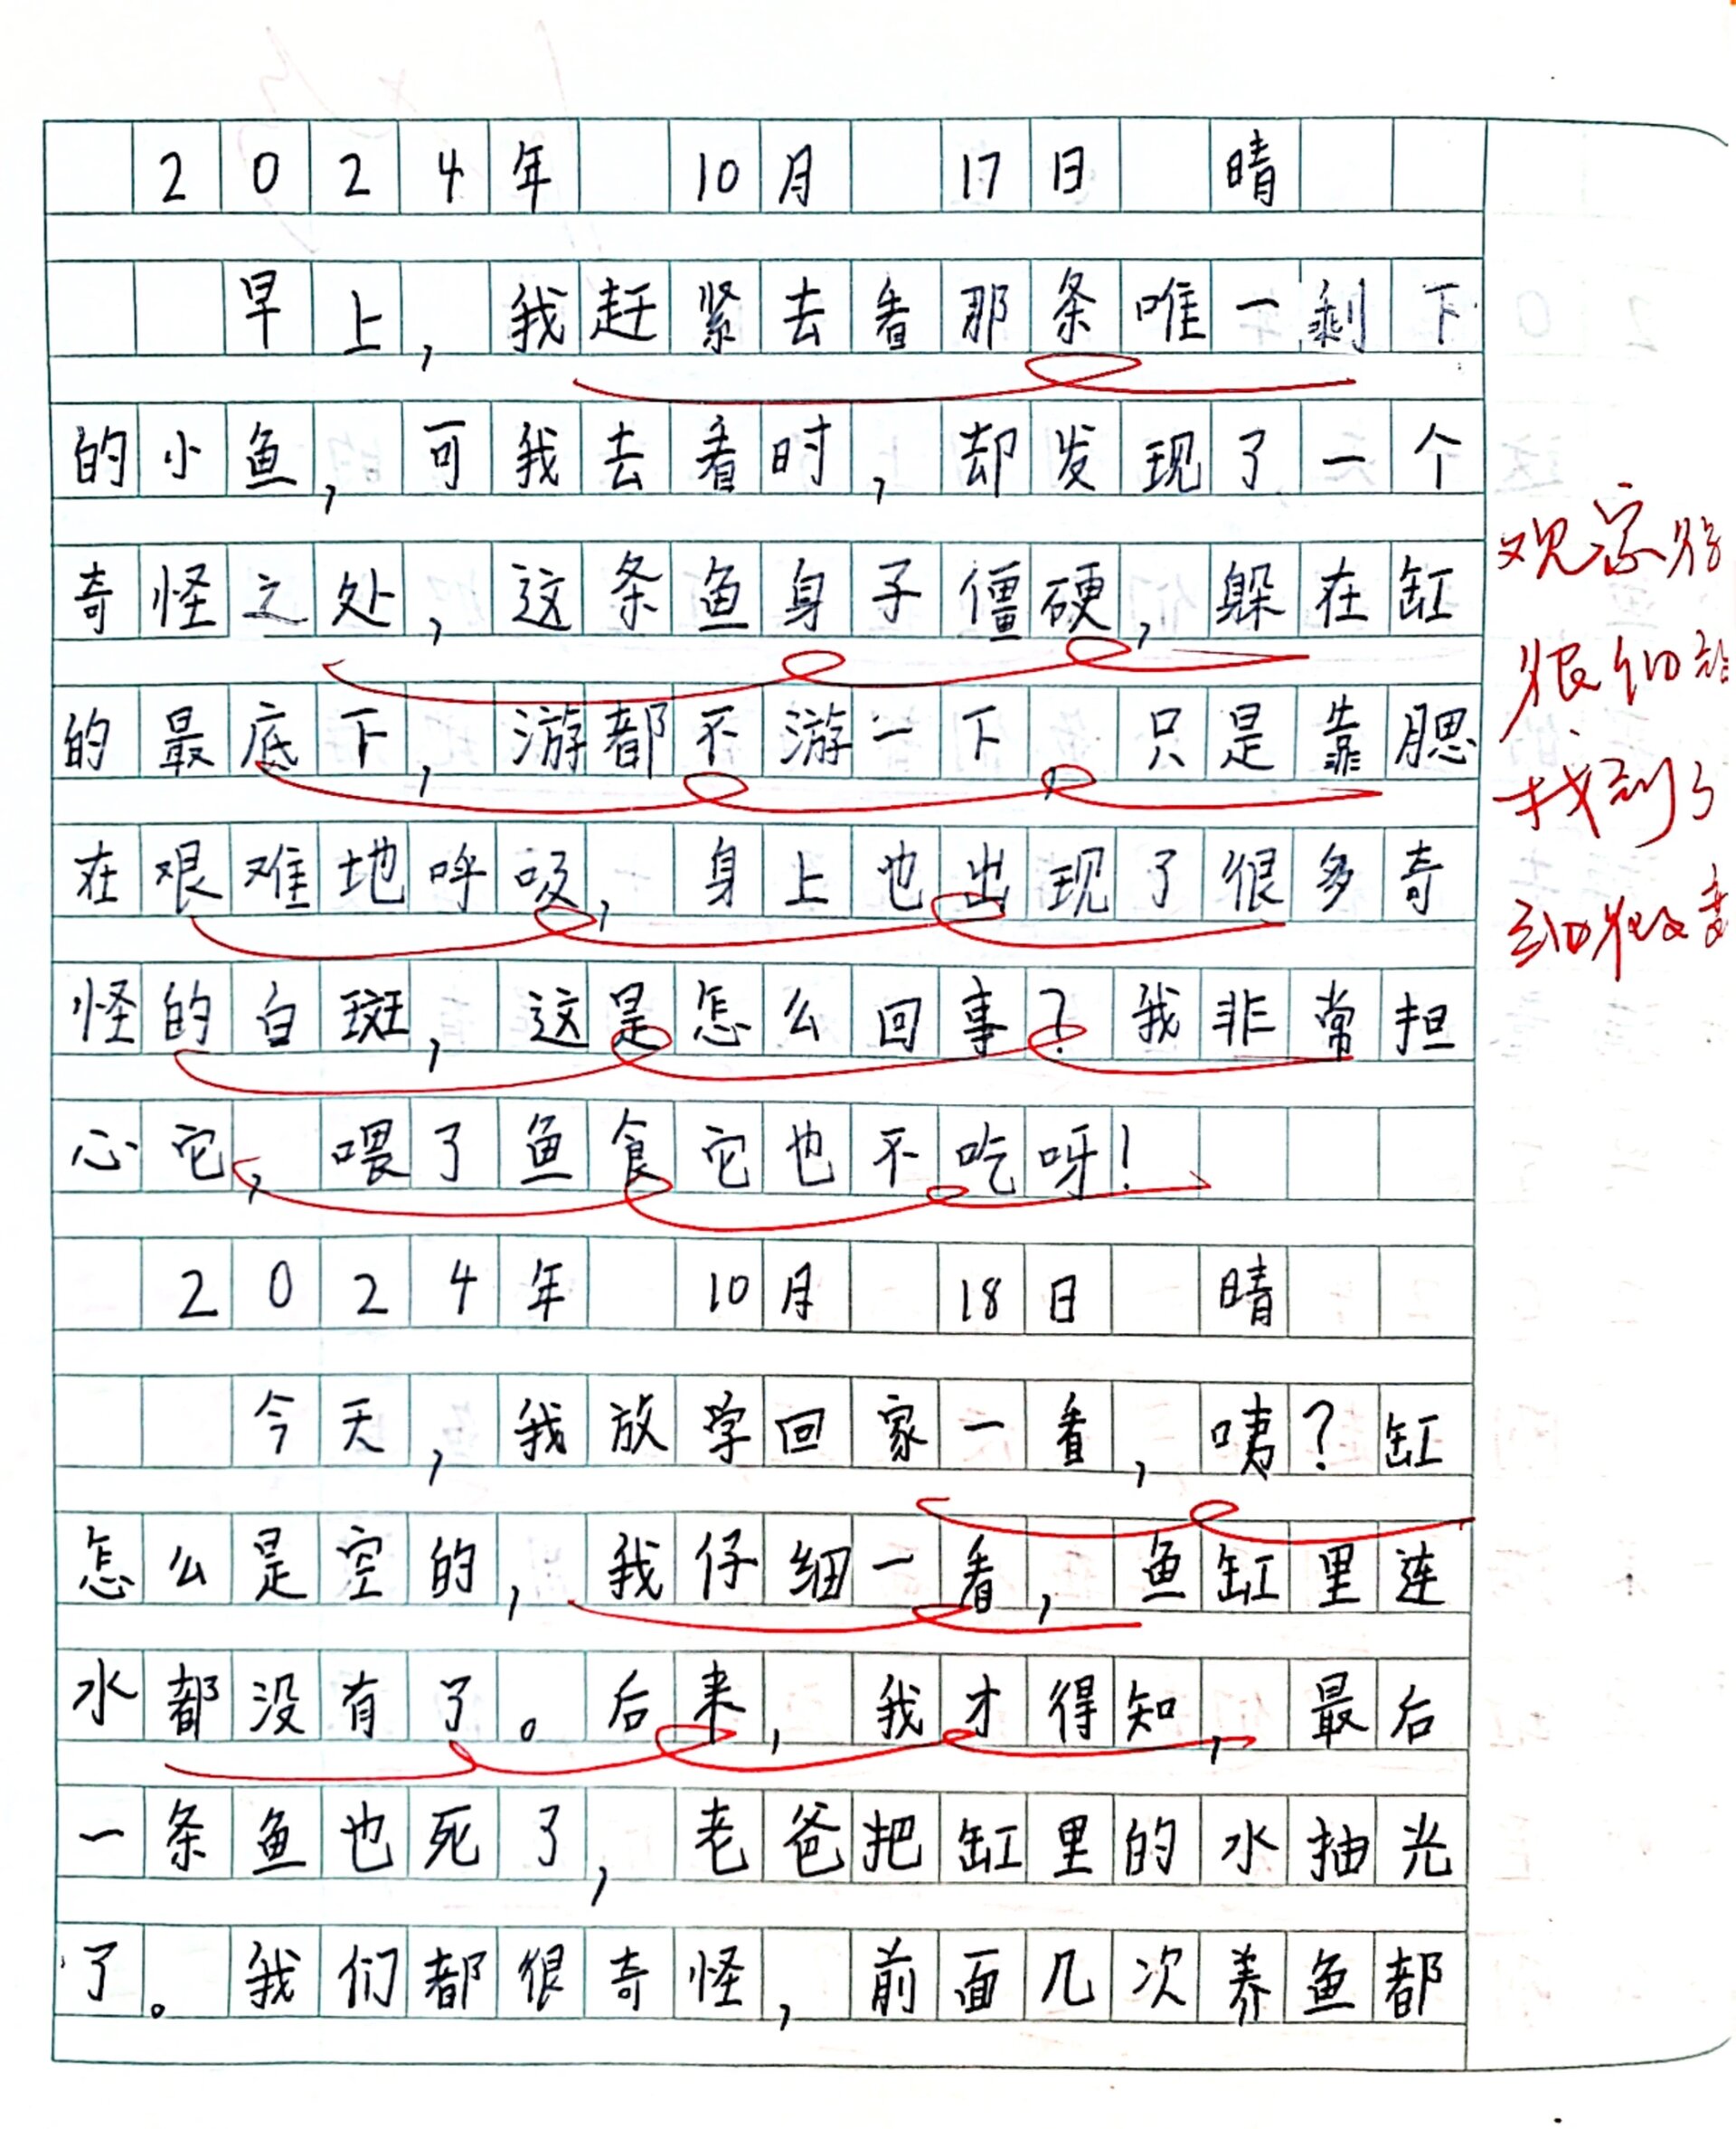 2024年 10月 17日 晴
早上，我赶紧去看那条唯一剩下
的小鱼，可我去看时，却发现了一个
奇怪之处，这条鱼身子僵硬，躲在缸
的最底下，游都不游一下，只是靠腮
在艰难地呼吸，身上也出现了很多奇
怪的白斑，这是怎么回事？我非常担
心它，喂了鱼食它也不吃呀！
2024年 10月 18日 晴
今天，我放学回家一看，咦？缸
怎么是空的，我仔细一看，鱼缸里连
水都没有了。后来，我才得知，最后
一条鱼也死了，老爸把缸里的水抽光
了。我们都很奇怪，前面几次养鱼都
观察
很细
找到了
细